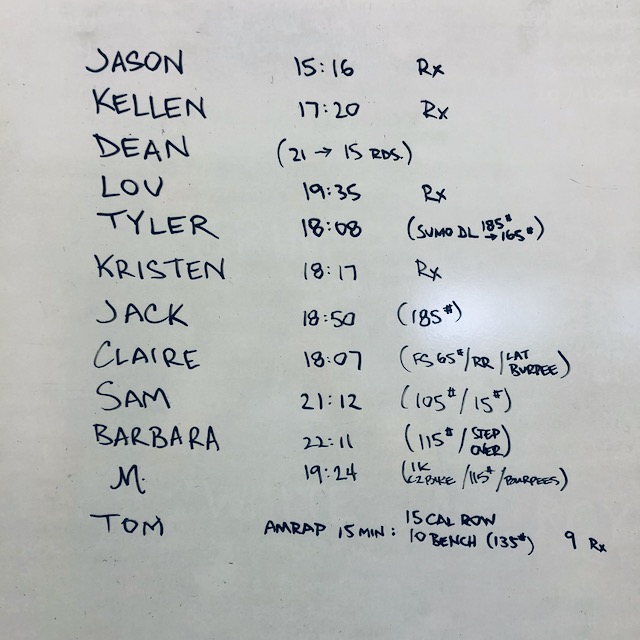 JASON 15:16 Rx
KELLEN 17:20 Rx
DEAN (21 → 15 RDS.)
LOU 19:35 Rx
TYLER 18:08 (SUMO DL 185# → 165#)
KRISTEN 18:17 Rx
JACK 18:50 (185#)
CLAIRE 18:07 (FS 65#/RR/LAT BURPEE)
SAM 21:12 (105#/15#)
BARBARA 22:11 (115#/STEP OVER)
M. 19:24 (1K C2 BIKE/115#/BURPEES)
TOM AMRAP 15 MIN: 15 CAL ROW
10 BENCH (135#) 9 Rx